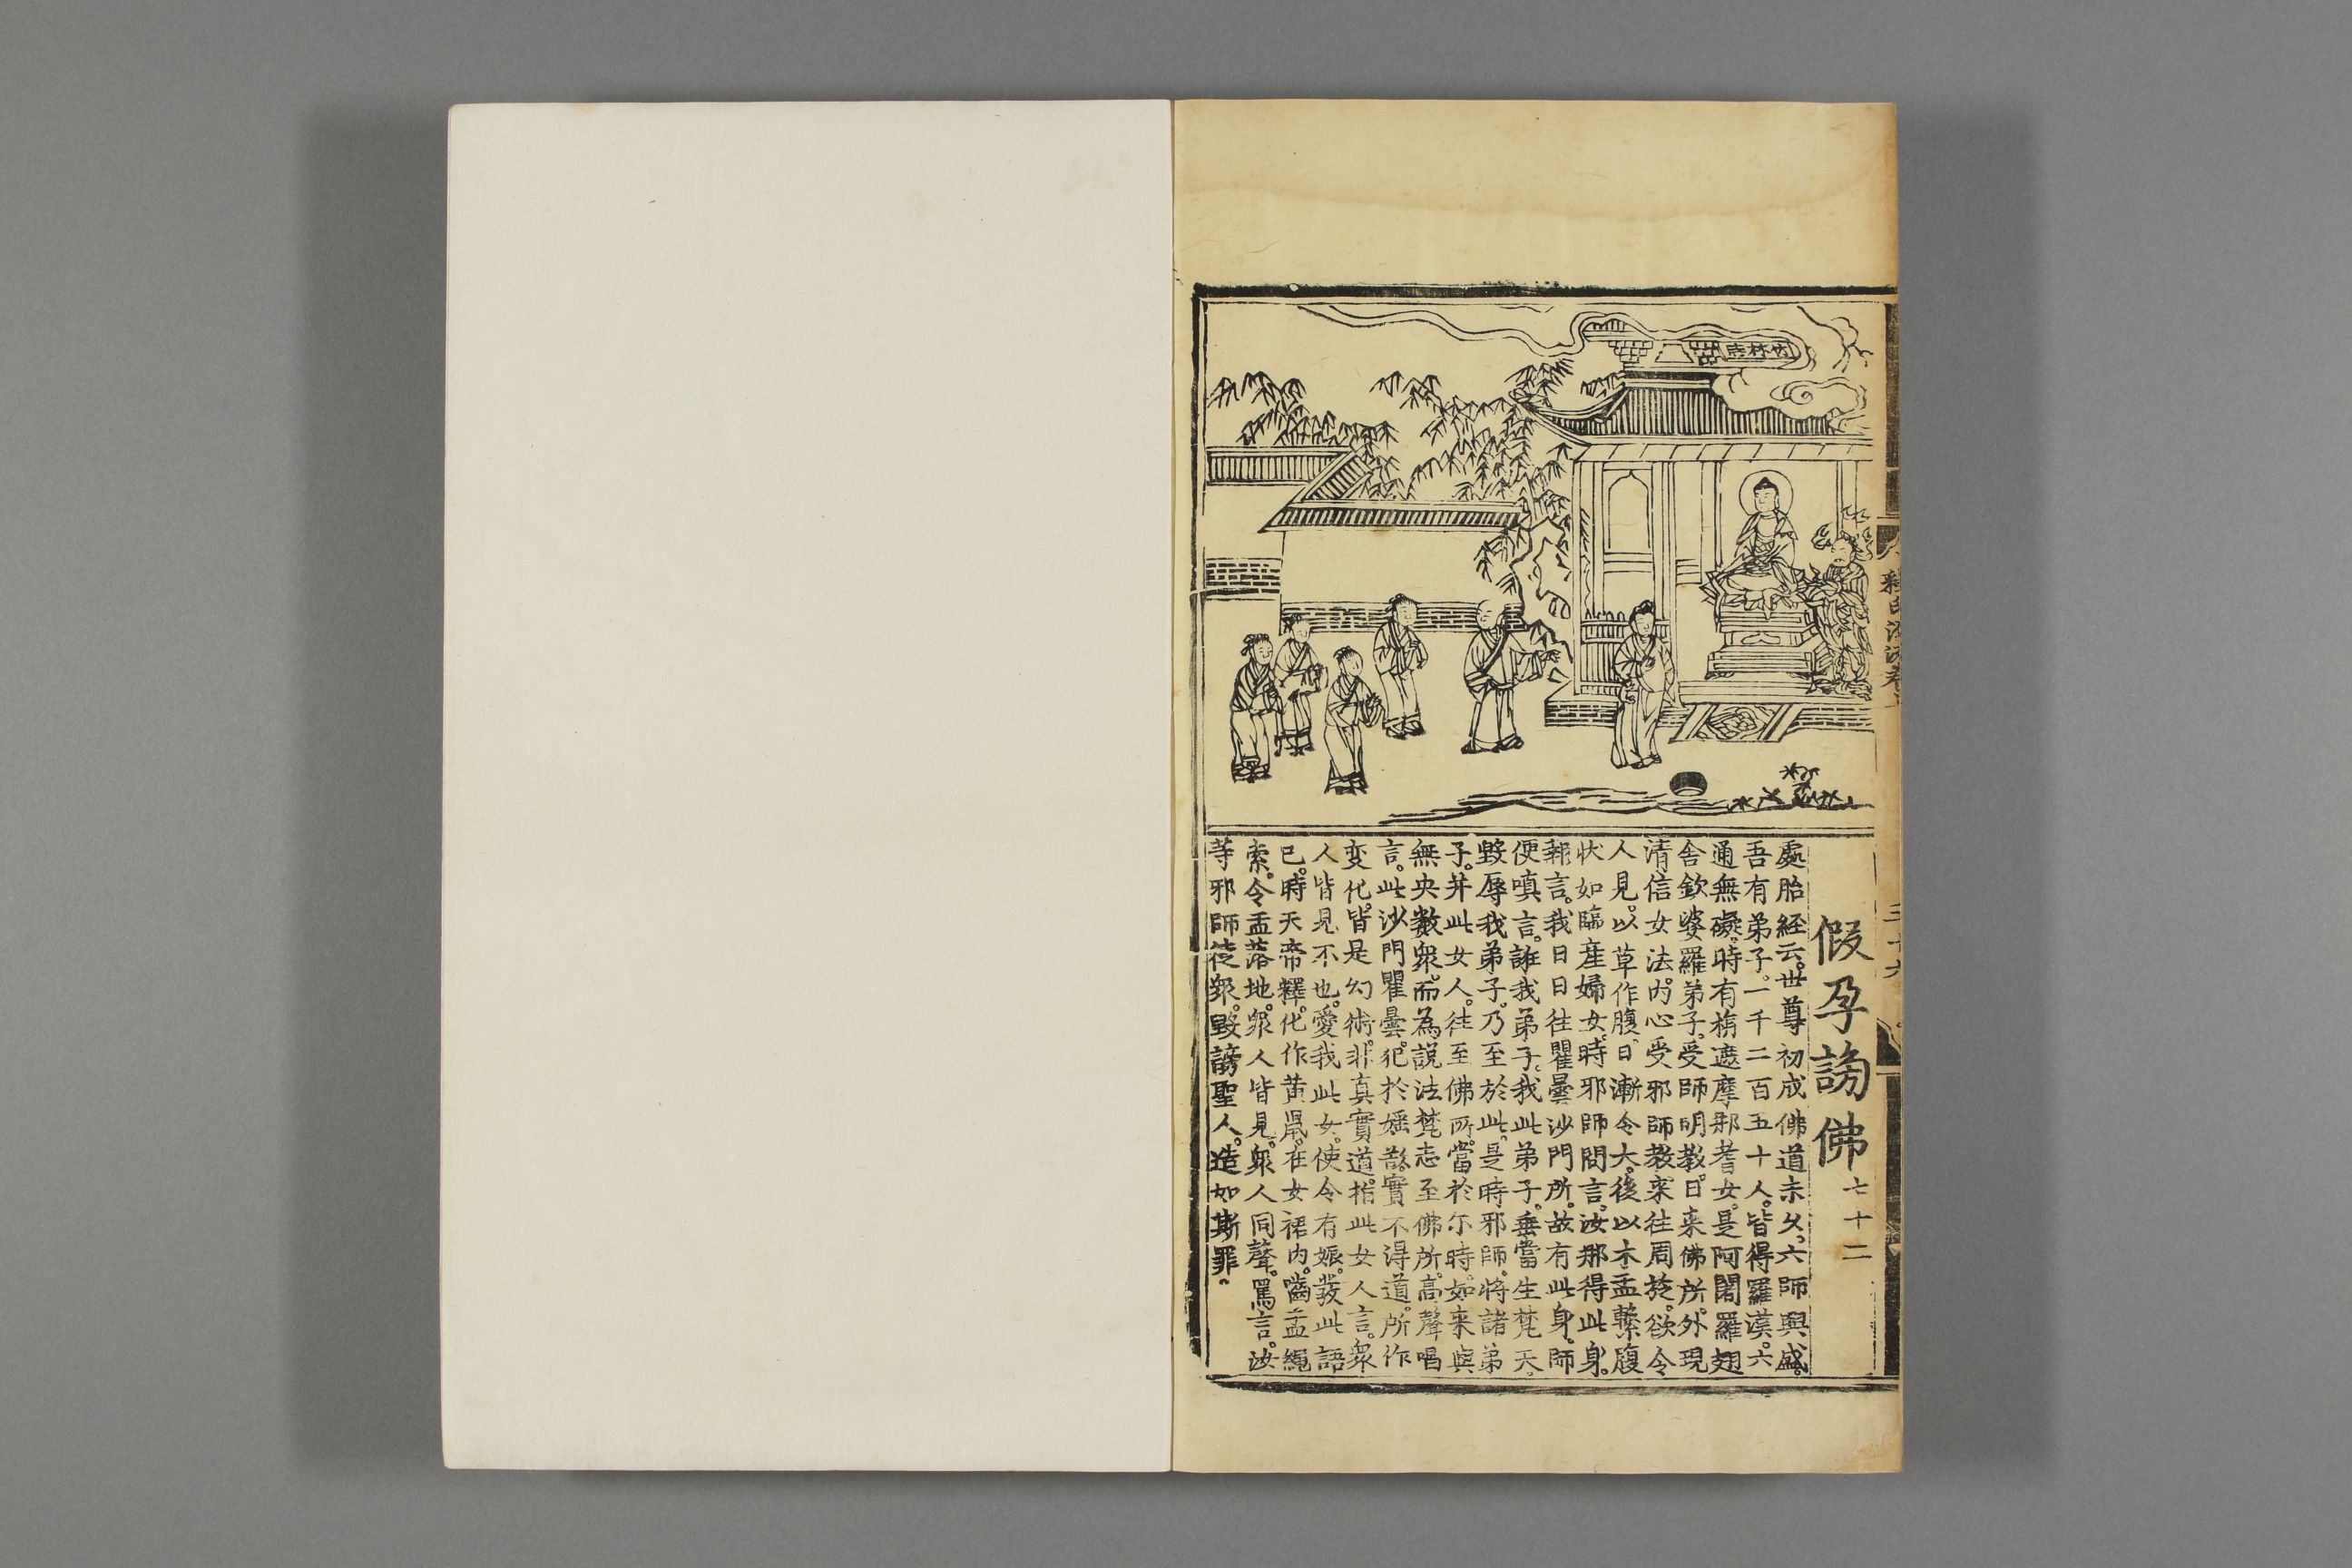 假孕謗佛七十二
處胎經云。世尊初成佛道未久。六師興盛。
吾有弟子。一千二百五十人。皆得羅漢。六
通無礙。時有栴遮摩那耆女。是阿闍羅翅
舍欽婆羅弟子。受師明教。日来佛所。外現
清信女法。内心受邪師教。来往周旋。欲令
人見。以草作腹。日漸令大。後以木盂繫腹
狀如臨産婦女。時邪師問言。汝那得此身。
報言。我日日往瞿曇沙門所。故有此身。師
便嗔言。誰我弟子。我此弟子。垂當生梵天。
毀辱我弟子。乃至於此。是時邪師。将諸弟
子。并此女人。往至佛所。當於尓時。如来與
無央數衆。而為說法。梵志至佛所。高聲唱
言。此沙門瞿曇。犯於婬欲。實不得道。所作
変化。皆是幻術。非真實道。指此女人言。衆
人皆見不也。愛我此女。使令有娠。發此語
已。時天帝釋。化作黄鼠。在女裙内。嚙盂繩
索。令盂落地。衆人皆見。衆人同聲。罵言。汝
等邪師徒衆。毀謗聖人。造如斯罪。